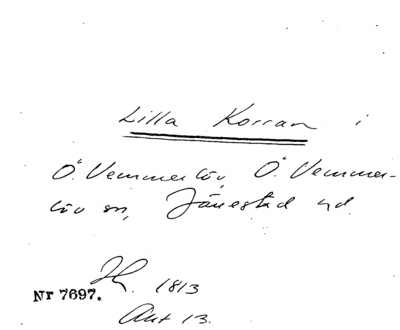 Lilla Korran i
Ö. Vemmerlöv, Ö. Vemmer-
löv sn, Järrestad hd.
1813
Nr 7697.
Akt 13.